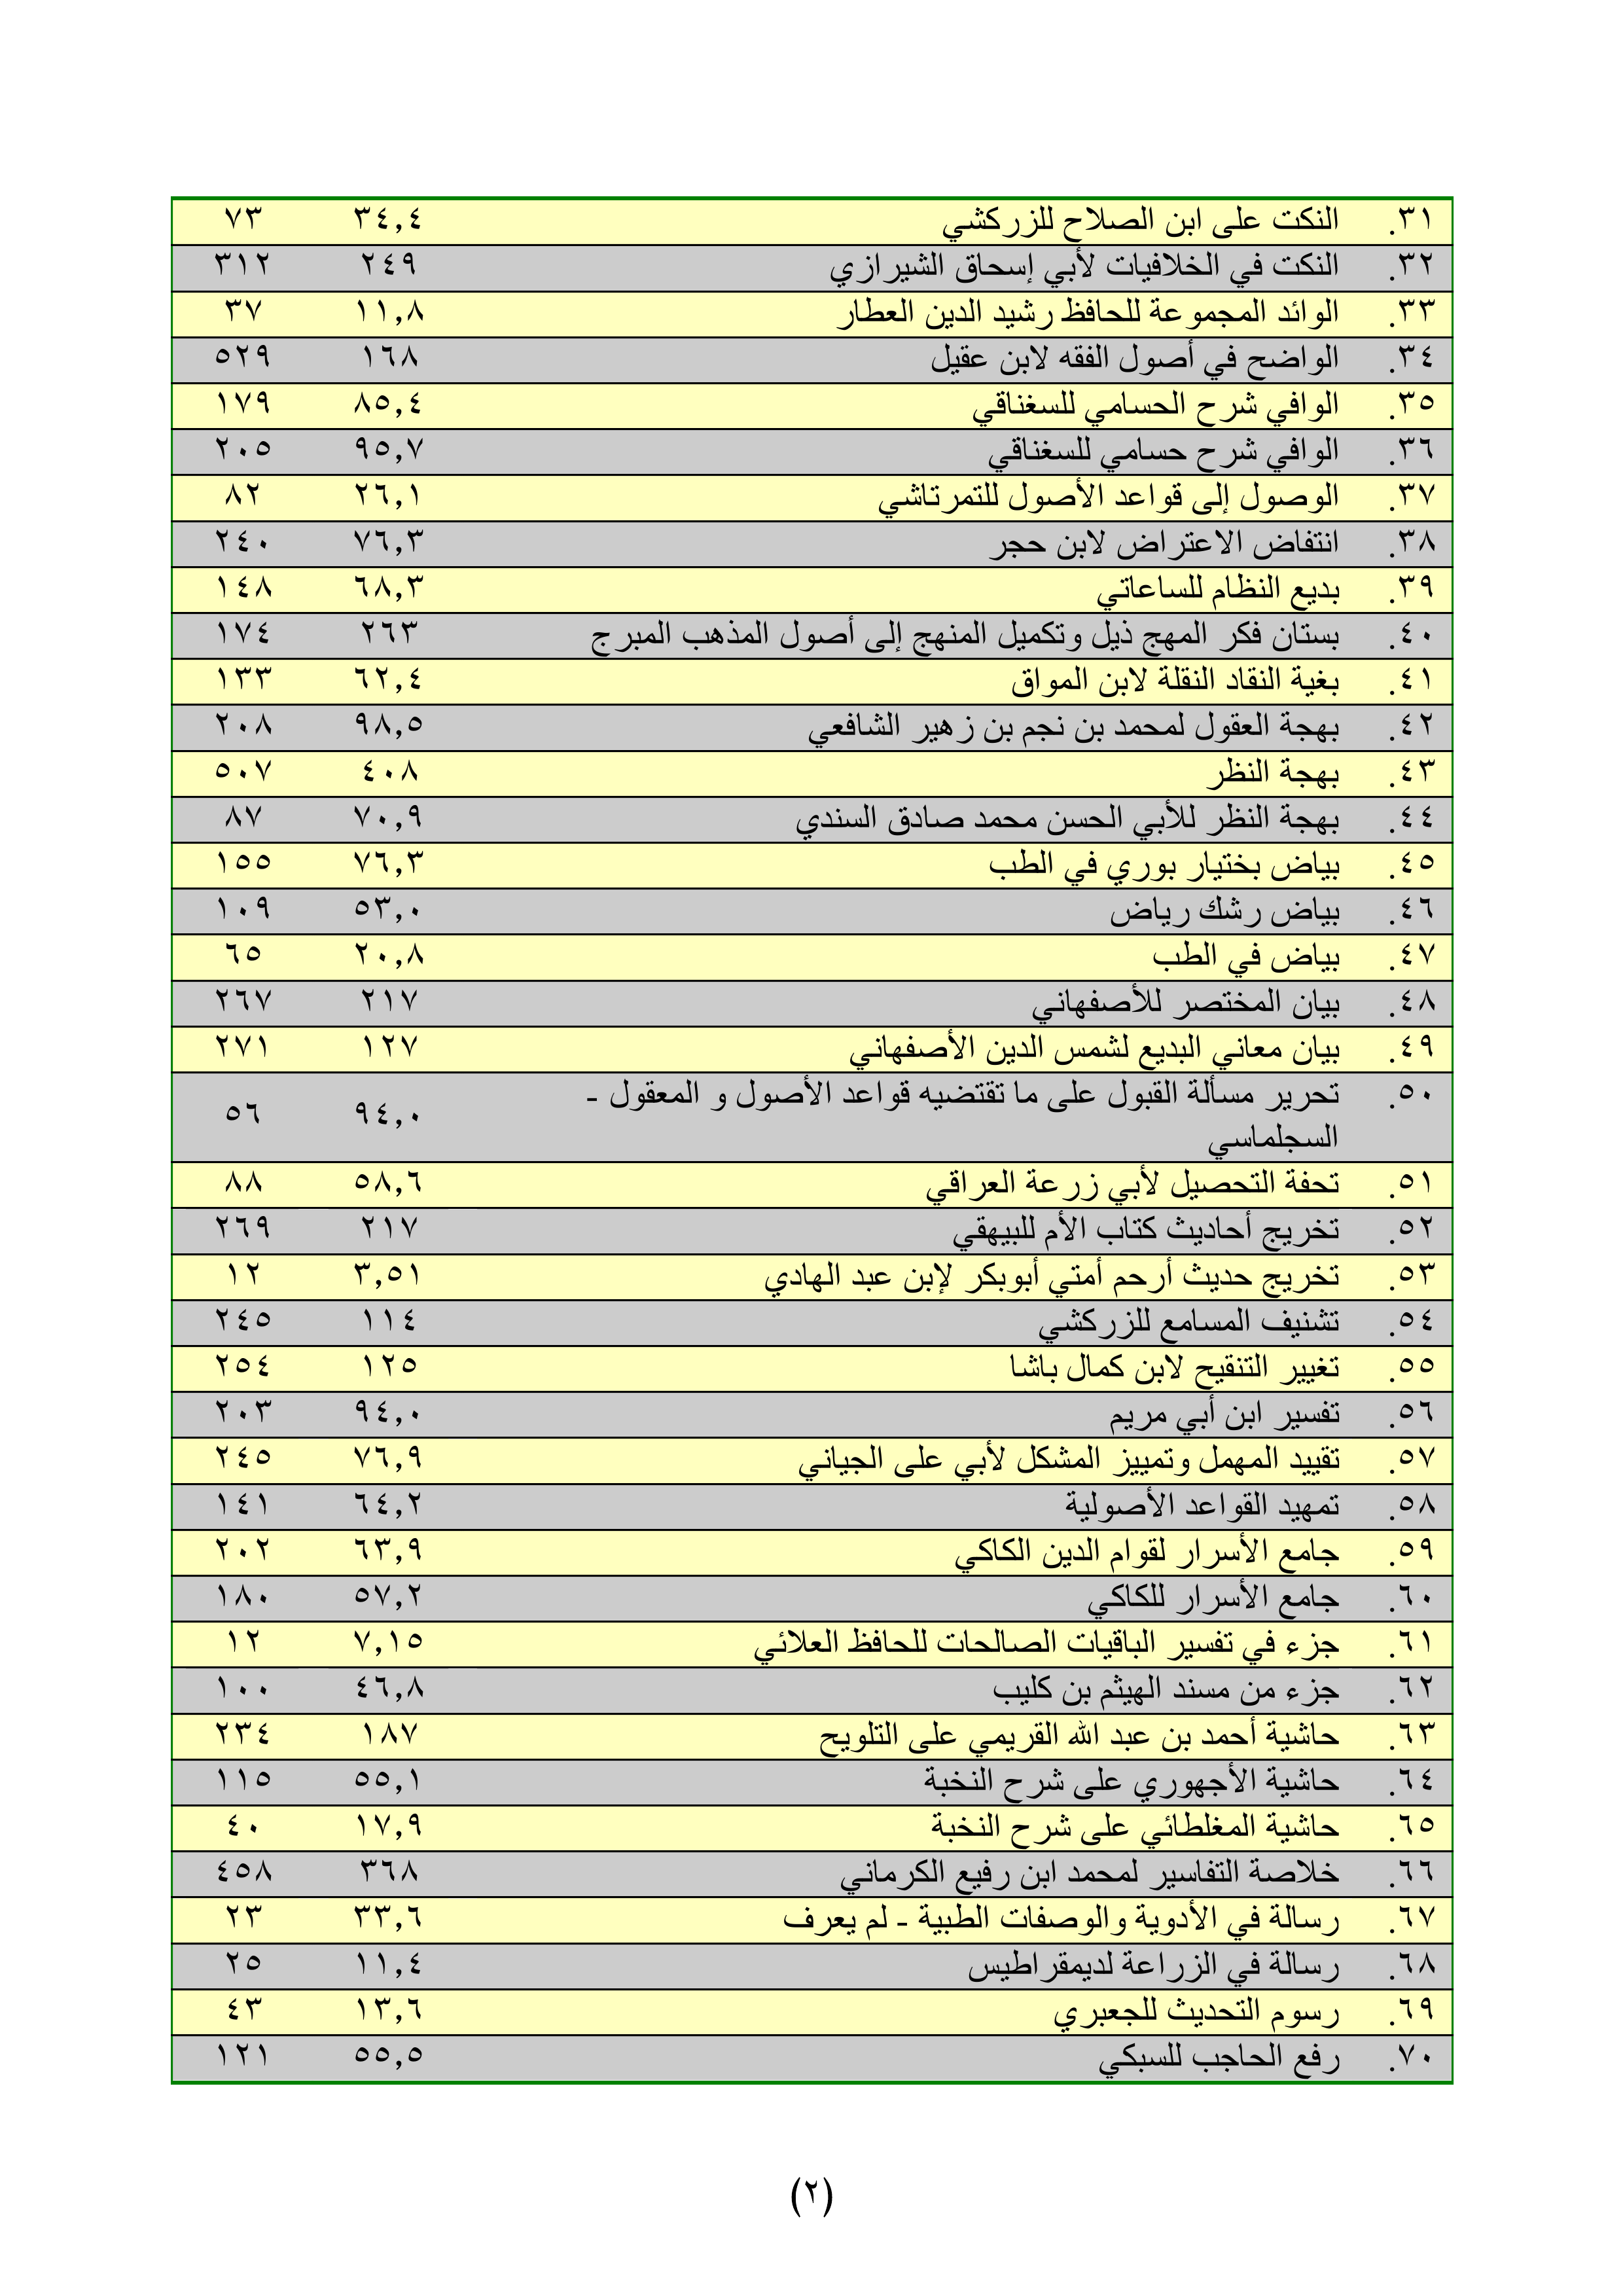 ٣١. النكت على ابن الصلاح للزركشي ٣٤,٤ ٧٣
٣٢. النكت في الخلافيات لأبي إسحاق الشيرازي ٢٤٩ ٣١٢
٣٣. الوائد المجموعة للحافظ رشيد الدين العطار ١١,٨ ٣٧
٣٤. الواضح في أصول الفقه لابن عقيل ١٦٨ ٥٢٩
٣٥. الوافي شرح الحسامي للسغناقي ٨٥,٤ ١٧٩
٣٦. الوافي شرح حسامي للسغناقي ٩٥,٧ ٢٠٥
٣٧. الوصول إلى قواعد الأصول للتمرتاشي ٢٦,١ ٨٢
٣٨. انتفاض الاعتراض لابن حجر ٧٦,٣ ٢٤٠
٣٩. بديع النظام للساعاتي ٦٨,٣ ١٤٨
٤٠. بستان فكر المهج ذيل وتكميل المنهج إلى أصول المذهب المبرج ٢٦٣ ١٧٤
٤١. بغية النقاد النقلة لابن المواق ٦٢,٤ ١٣٣
٤٢. بهجة العقول لمحمد بن نجم بن زهير الشافعي ٩٨,٥ ٢٠٨
٤٣. بهجة النظر ٤٠٨ ٥٠٧
٤٤. بهجة النظر للأبي الحسن محمد صادق السندي ٧٠,٩ ٨٧
٤٥. بياض بختيار بوري في الطب ٧٦,٣ ١٥٥
٤٦. بياض رشك رياض ٥٣,٠ ١٠٩
٤٧. بياض في الطب ٢٠,٨ ٦٥
٤٨. بيان المختصر للأصفهاني ٢١٧ ٢٦٧
٤٩. بيان معاني البديع لشمس الدين الأصفهاني ١٢٧ ٢٧١
٥٠. تحرير مسألة القبول على ما تقتضيه قواعد الأصول و المعقول - ٩٤,٠ ٥٦
السجلماسي
٥١. تحفة التحصيل لأبي زرعة العراقي ٥٨,٦ ٨٨
٥٢. تخريج أحاديث كتاب الأم للبيهقي ٢١٧ ٢٦٩
٥٣. تخريج حديث أرحم أمتي أبوبكر لإبن عبد الهادي ٣,٥١ ١٢
٥٤. تشنيف المسامع للزركشي ١١٤ ٢٤٥
٥٥. تغيير التنقيح لابن كمال باشا ١٢٥ ٢٥٤
٥٦. تفسير ابن أبي مريم ٩٤,٠ ٢٠٣
٥٧. تقييد المهمل وتمييز المشكل لأبي على الجياني ٧٦,٩ ٢٤٥
٥٨. تمهيد القواعد الأصولية ٦٤,٢ ١٤١
٥٩. جامع الأسرار لقوام الدين الكاكي ٦٣,٩ ٢٠٢
٦٠. جامع الأسرار للكاكي ٥٧,٢ ١٨٠
٦١. جزء في تفسير الباقيات الصالحات للحافظ العلائي ٧,١٥ ١٢
٦٢. جزء من مسند الهيثم بن كليب ٤٦,٨ ١٠٠
٦٣. حاشية أحمد بن عبد الله القريمي على التلويح ١٨٧ ٢٣٤
٦٤. حاشية الأجهوري على شرح النخبة ٥٥,١ ١١٥
٦٥. حاشية المغلطائي على شرح النخبة ١٧,٩ ٤٠
٦٦. خلاصة التفاسير لمحمد ابن رفيع الكرماني ٣٦٨ ٤٥٨
٦٧. رسالة في الأدوية والوصفات الطبية - لم يعرف ٣٣,٦ ٢٣
٦٨. رسالة في الزراعة لديمقراطيس ١١,٤ ٢٥
٦٩. رسوم التحديث للجعبري ١٣,٦ ٤٣
٧٠. رفع الحاجب للسبكي ٥٥,٥ ١٢١
(٢)